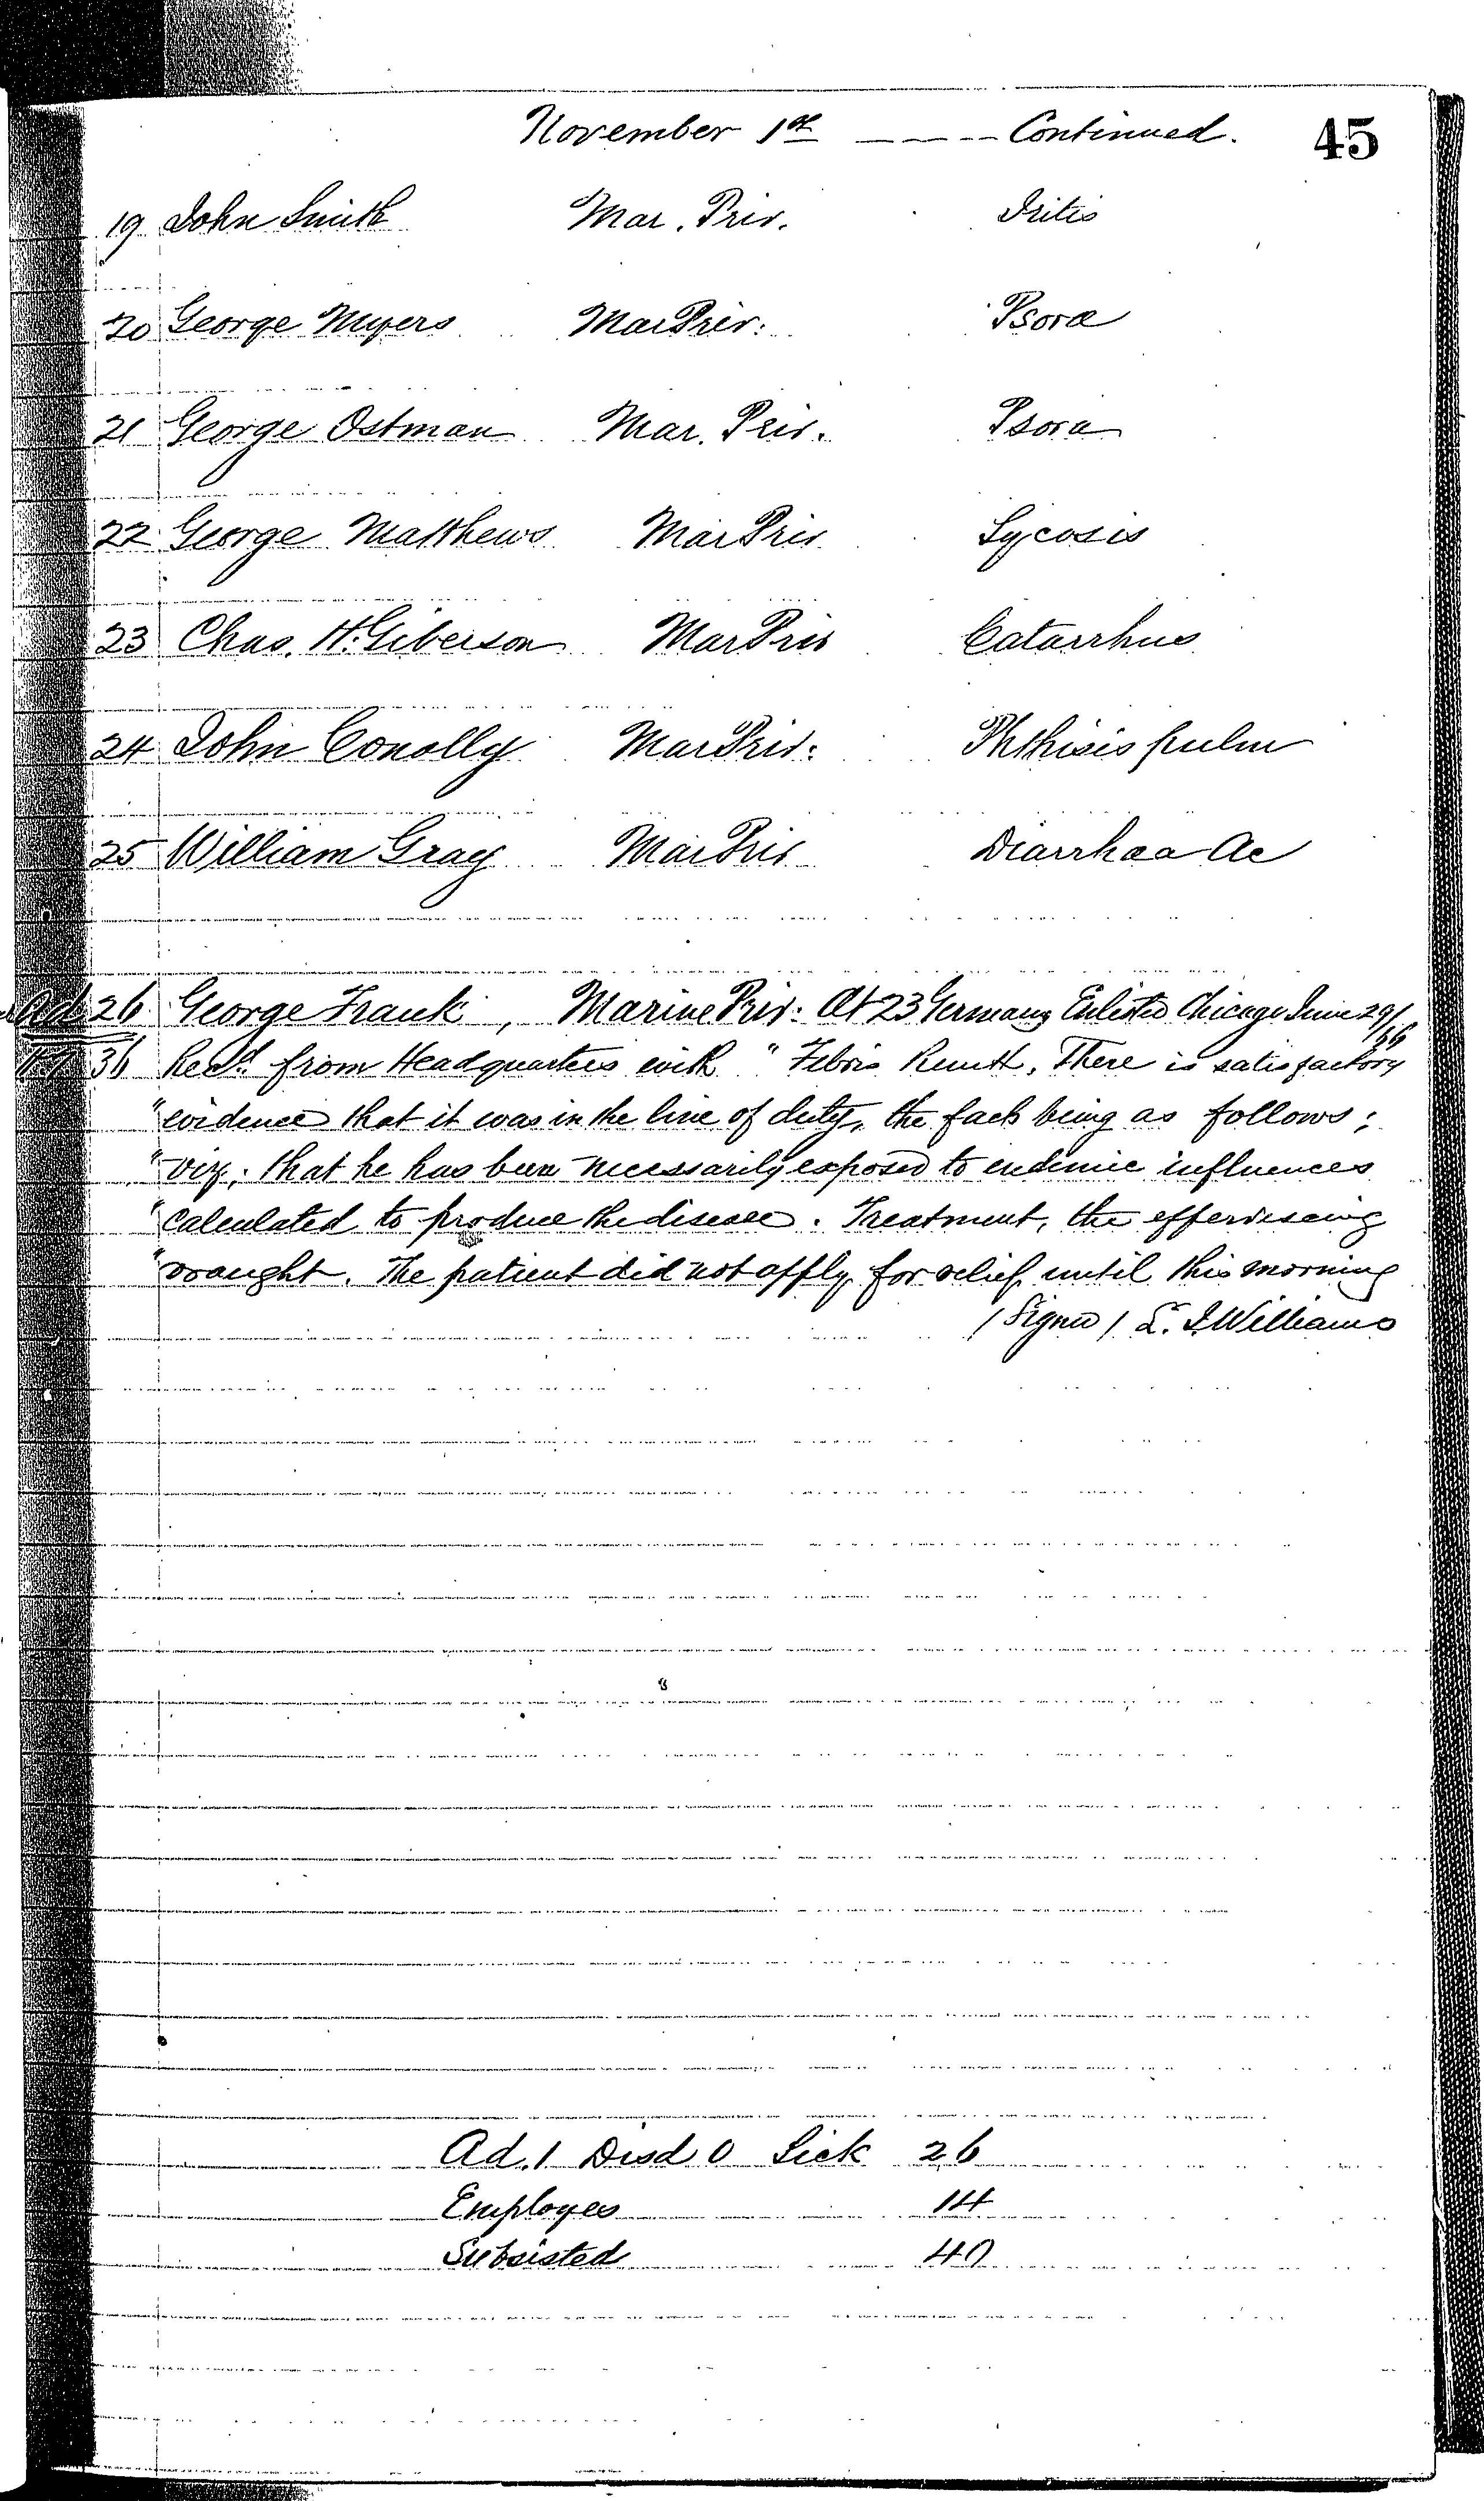 November 1st ---- Continued. 45
19 John Smith Mar. Priv. Iritis
20 George Myers Mar Priv: Psora
21 George Ostman Mar. Priv. Psora
22 George Matthews Mar Priv Sycosis
23 Chas. H. Giberson Mar Priv Catarrhus
24 John Conolly Mar Priv: Phthisis pulm
25 William Gray Mar Priv Diarrhœa Ac
Ad 26 George Frank, Marine Priv: At 23 Germany Enlisted Chicago June 29/66
36 Recd. from Headquarters with "Febris Remitt. There is satisfactory
"evidence that it was in the line of duty, the facts being as follows;
"viz; that he has been necessarily exposed to endemic influences
"calculated to produce the disease. Treatment, the effervescing
"draught. The patient did not apply for relief until this morning
/ Signed / Williams
Ad. 1 Disd 0 Sick 26
Employes 14
Subsisted 40